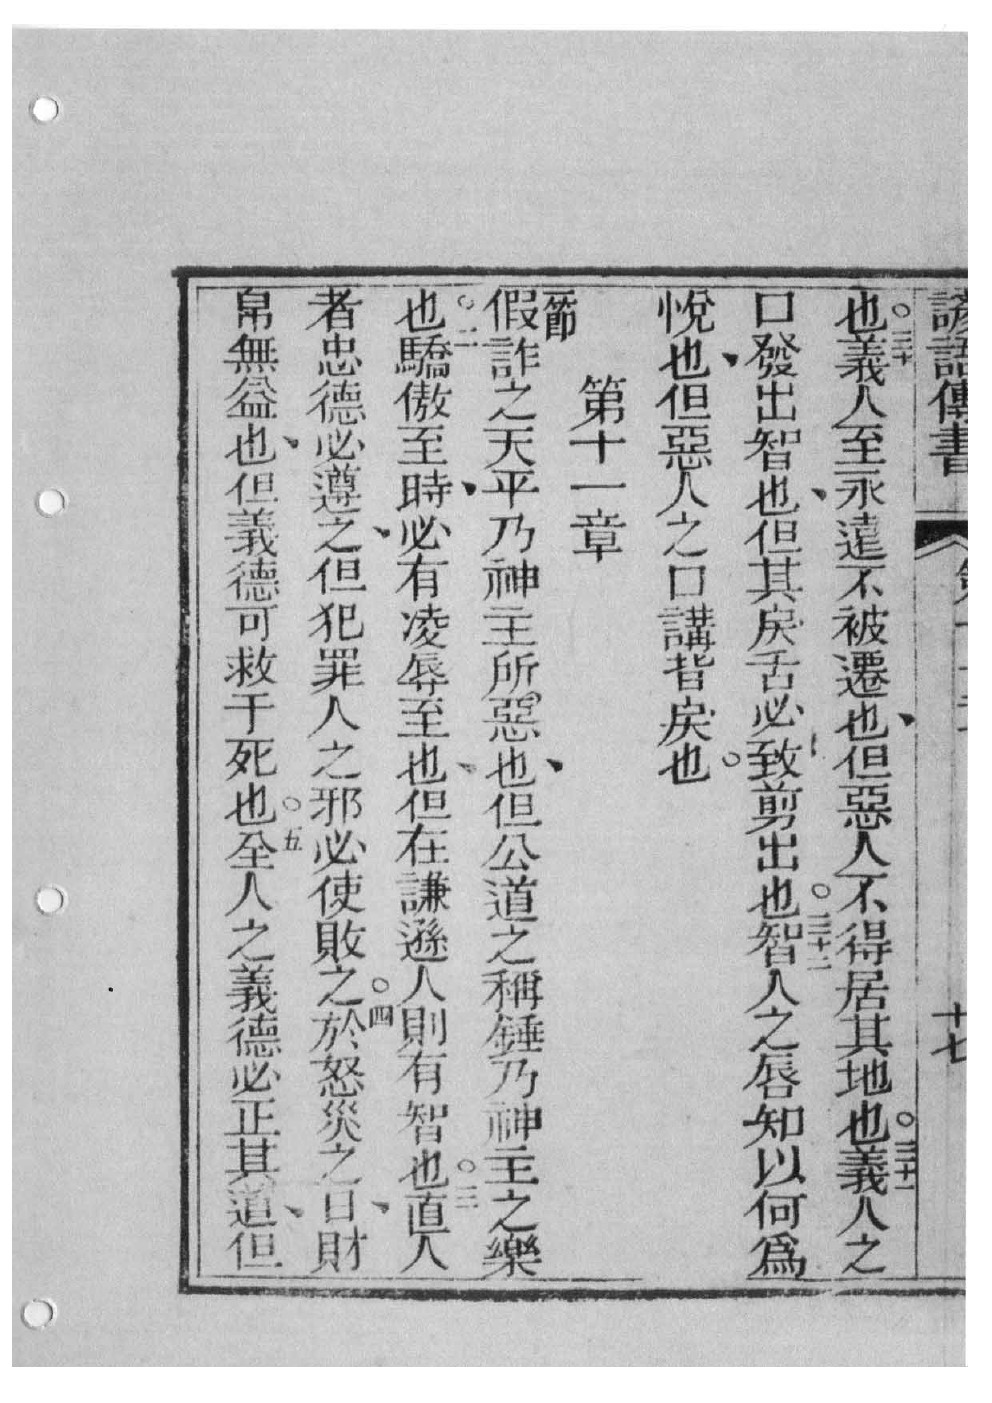 諺語傳書
十七
也○三十義人至永遠不被遷也、但惡人不得居其地也○三十一義人之
口發出智也、但其戾舌必致剪出也○三十二智人之唇知以何爲
悅也、但惡人之口講背戾也○
第十一章
一節假詐之天平乃神主所惡也、但公道之稱錘乃神主之樂
也○二驕傲至時、必有凌辱至也、但在謙遜人則有智也○三直人
者忠德必遵之、但犯罪人之邪必使敗之○四於怒災之日、財
帛無益也、但義德可救于死也○五全人之義德必正其道、但